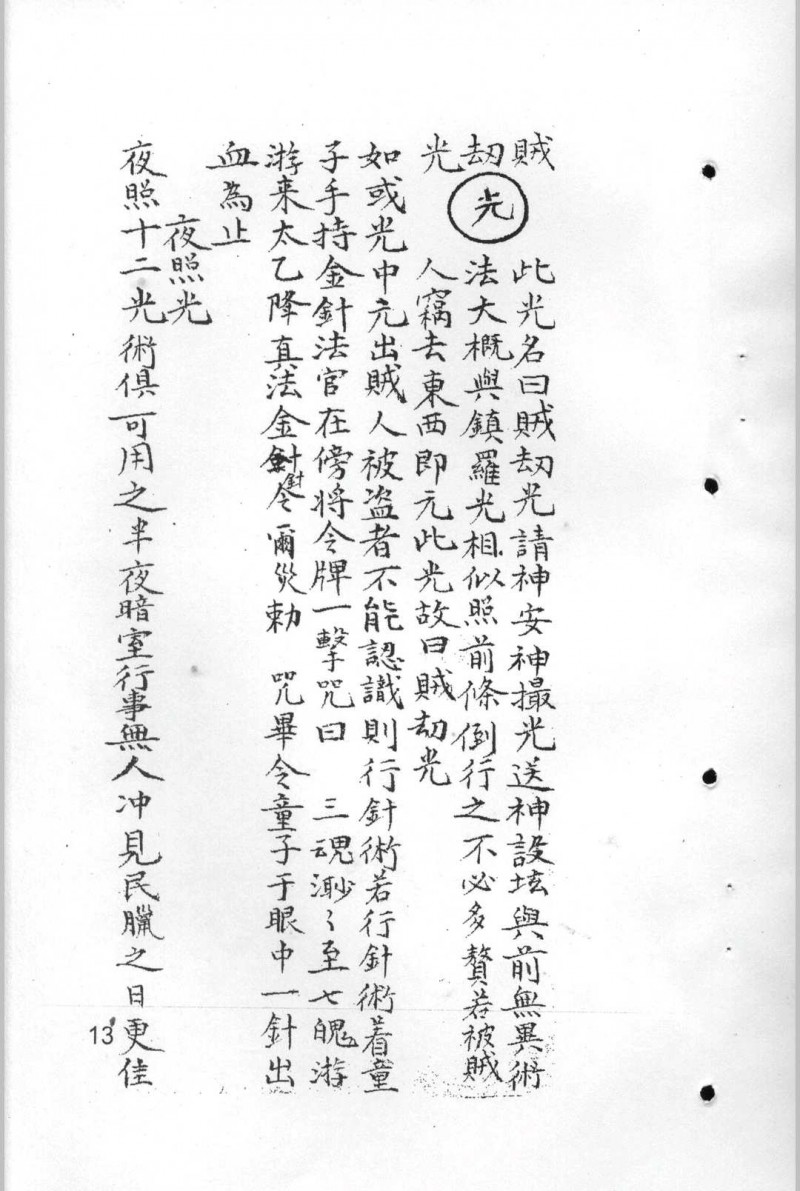 賊劫光
光
此光名曰賊劫光請神安神撮光送神設坛與前無異術
法大概與鎮羅光相似照前條倒行之不必多贅若被賊
人竊去東西即元此光故曰賊劫光
如或光中元出賊人被盜者不能認識則行針術若行針術着童
子手持金針法官在傍将令牌一擊咒曰 三魂渺〻至七魄游
游来太乙降真法金針令爾災勅 咒畢令童子于眼中一針出
血為止
夜照光
夜照十二光術俱可用之半夜暗室行事無人冲見民臘之日更佳
13